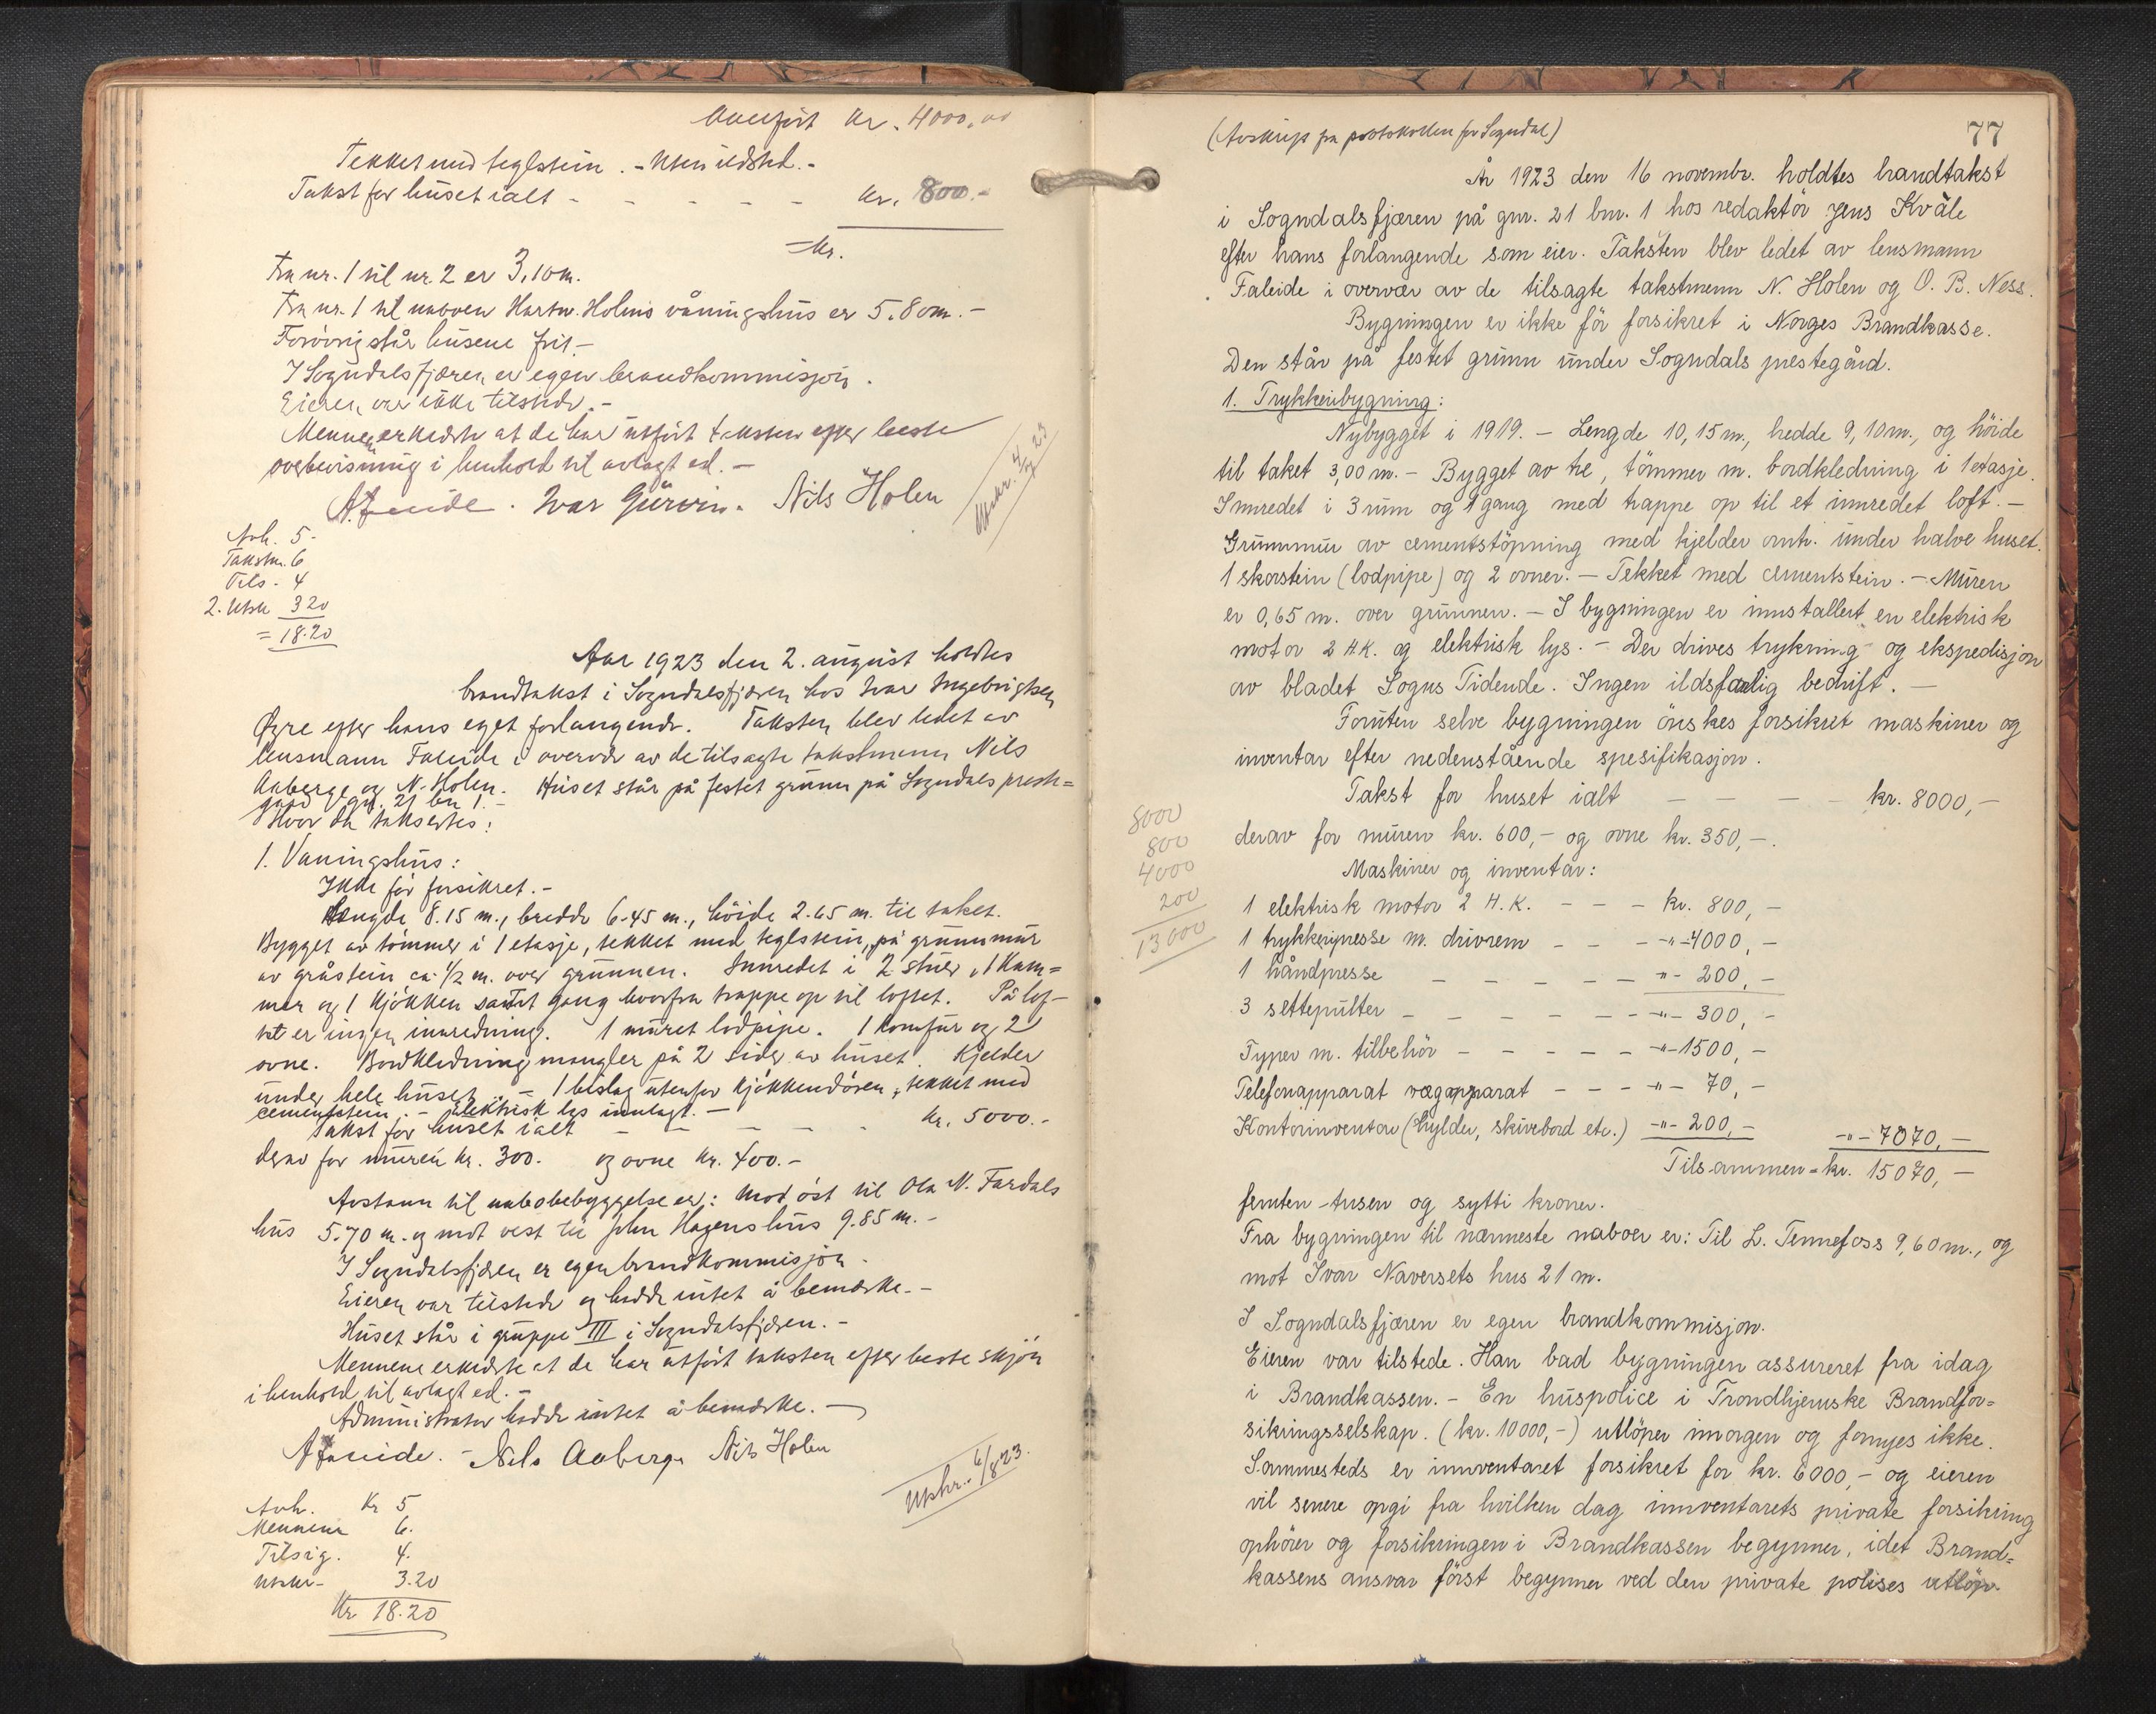 Overført kr. 4000,00
Tekket med teglstein. - Uten ildsted. -
Takst for huset ialt - - - - - kr. 800.-
Kr.
Fra nr. 1 til nr. 2 er 3,10 m.
Fra nr. 1 til naboen Hartv. Holms våningshus er 5.80 m. -
Forövrig står husene frit. -
I Sogndalsfjæren er egen brandkommisjon.
Eieren var ikke tilstede. -
Mennene erklærte at de har utfört taksten efter beste
overbevisning i henhold til avlagt ed. -
A Faleide. Ivar Gürvin. Nils Holen
Utskr. 4/7 23
Avh. 5 -
Takstm. 6
Tils - 4
2. Utsk 3 20
= 18.20
Aar 1923 den 2. august holdtes
brandtakst i Sogndalsfjæren hos Ivar Ingebrigtsen
Øyre efter hans eget forlangende. Taksten blev ledet av
lensmann Faleide i overvær av de tilsagte takstmenn Nils
Aaberge og N. Holen. Huset står på festet grunn på Sogndals preste=
gård gn. 21 bn 1. -
Hvor da taksertes:
1. Vaningshus:
Ikke för forsikret. -
Længde 8.15 m., bredde 6.45 m., höide 2.65 m. til taket.
Bygget av tömmer i 1 etasje, tekket med teglstein, på grunnmur
av gråstein ca. 1/2 m. over grunnen. Innredet i 2 stuer, 1 Kam=
mer og 1 kjökken samt gang hvorfra trappe op til loftet. På lof-
tet er ingen innredning. 1 muret lodpipe. 1 komfur og 2
ovne. Bordkledning mangler på 2 sider av huset. Kjelder
under hele huset. - 1 bislag utenfor kjökkendören, tekket med
cementstein. - Elektrisk lys innlagt. -
Takst for huset ialt - - - - - kr. 5000.-
derav for muren kr. 300. og ovne kr. 400.-
Avstann til nabobebyggelse er: Mod öst til Ola N. Fardals
hus 5.70 m. og mot vest til John Hagens hus 9.85 m. -
I Sogndalsfjæren er egen brandkommisjon.
Eieren var tilstede og hadde intet å bemærke. -
Huset står i gruppe III i Sogndalsfjæren. -
Mennene erklærte at de har utfört taksten efter beste skjön
i henhold til avlagt ed. -
Administrator hadde intet å bemærke. -
A Faleide. - Nils Aaberge Nils Holen
Utskr. 6/8 23.
Avh. Kr 5
Mennene 6.
Tilsig. 4.
Utskr- 3.20
Kr 18.20
77
(Avskrift fra protokollen for Sogndal)
År 1923 den 16 novembr. holdtes brandtakst
i Sogndalsfjæren på gnr. 21 bnr. 1 hos redaktör Jens Kvåle
efter hans forlangende som eier. Taksten blev ledet av lensmann
Faleide i overvær av de tilsagte takstmenn N. Holen og O. B. Ness.
Bygningen er ikke för forsikret i Norges Brandkasse.
Den står på festet grunn under Sogndals prestegård.
1. Trykkeribygning:
Nybygget i 1919. - Lengde 10,15 m., bredde 9,10 m., og höide
til taket 3,00 m. - Bygget av tre, tömmer m. bordkledning i 1 etasje.
Innredet i 3 rum og 1 gang med trappe op til et innredet loft. -
Grunnmur av cementstöpning med kjelder omtr. under halve huset.
1 skorstein (lodpipe) og 2 ovner. - Tekket med cementstein. - Muren
er 0,65 m. over grunnen. - I bygningen er innstallert en elektrisk
motor 2 H.K. og elektrisk lys. - Der drives trykning og ekspedisjon
av bladet Sogns Tidende. Ingen ildsfarlig bedrift. -
Foruten selve bygningen önskes forsikret maskiner og
inventar efter nedenstående spesifikasjon.
Takst for huset ialt - - - - kr. 8000,-
derav for muren kr. 600,- og ovne kr. 350,-.
Maskiner og inventar:
8000
800
4000
200
13000
1 elektrisk motor 2 H.K. - - - kr. 800,-
1 trykkeripresse m. drivrem - - - -"- 4000,-
1 håndpresse - - - - - -"- 200,-
3 settepulter - - - - - - -"- 300,-
Typer m. tilbehör - - - - - -"- 1500,-
Telefonapparat vægapparat - - - -"- 70,-
Kontorinventar (hylder, skivebord etc.) -"- 200,- -"- 7070,-
Tilsammen = kr. 15070,-
femten-tusen og sytti kroner.
Fra bygningen til nærmeste naboer er: Til L. Tennefoss 9,60 m., og
mot Ivar Naversets hus 21 m.
I Sogndalsfjæren er egen brandkommisjon.
Eieren var tilstede. Han bad bygningen assureret fra idag
i Brandkassen. - En huspolice i Trondhjemske Brandfor=
sikringsselskap. (kr. 10000,-) utlöper imorgen og fornyes ikke.
Sammesteds er innventaret forsikret for kr. 6000,- og eieren
vil senere opgi fra hvilken dag innventarets private forsikring
ophörer og forsikringen i Brandkassen begynner, idet Brand=
kassens ansvar först begynner ved den private polises utlöp.